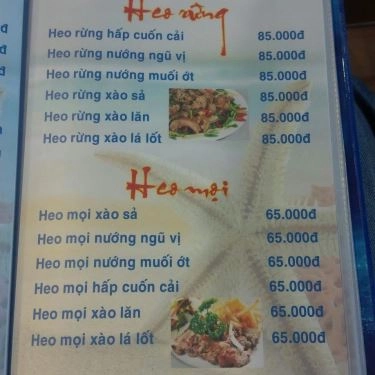 Heo rừng
Heo rừng hấp cuốn cải 85.000đ
Heo rừng nướng ngũ vị 85.000đ
Heo rừng nướng muối ớt 85.000đ
Heo rừng xào sả 85.000đ
Heo rừng xào lăn 85.000đ
Heo rừng xào lá lốt 85.000đ
Heo mọi
Heo mọi xào sả 65.000đ
Heo mọi nướng ngũ vị 65.000đ
Heo mọi nướng muối ớt 65.000đ
Heo mọi hấp cuốn cải 65.000đ
Heo mọi xào lăn 65.000đ
Heo mọi xào lá lốt 65.000đ